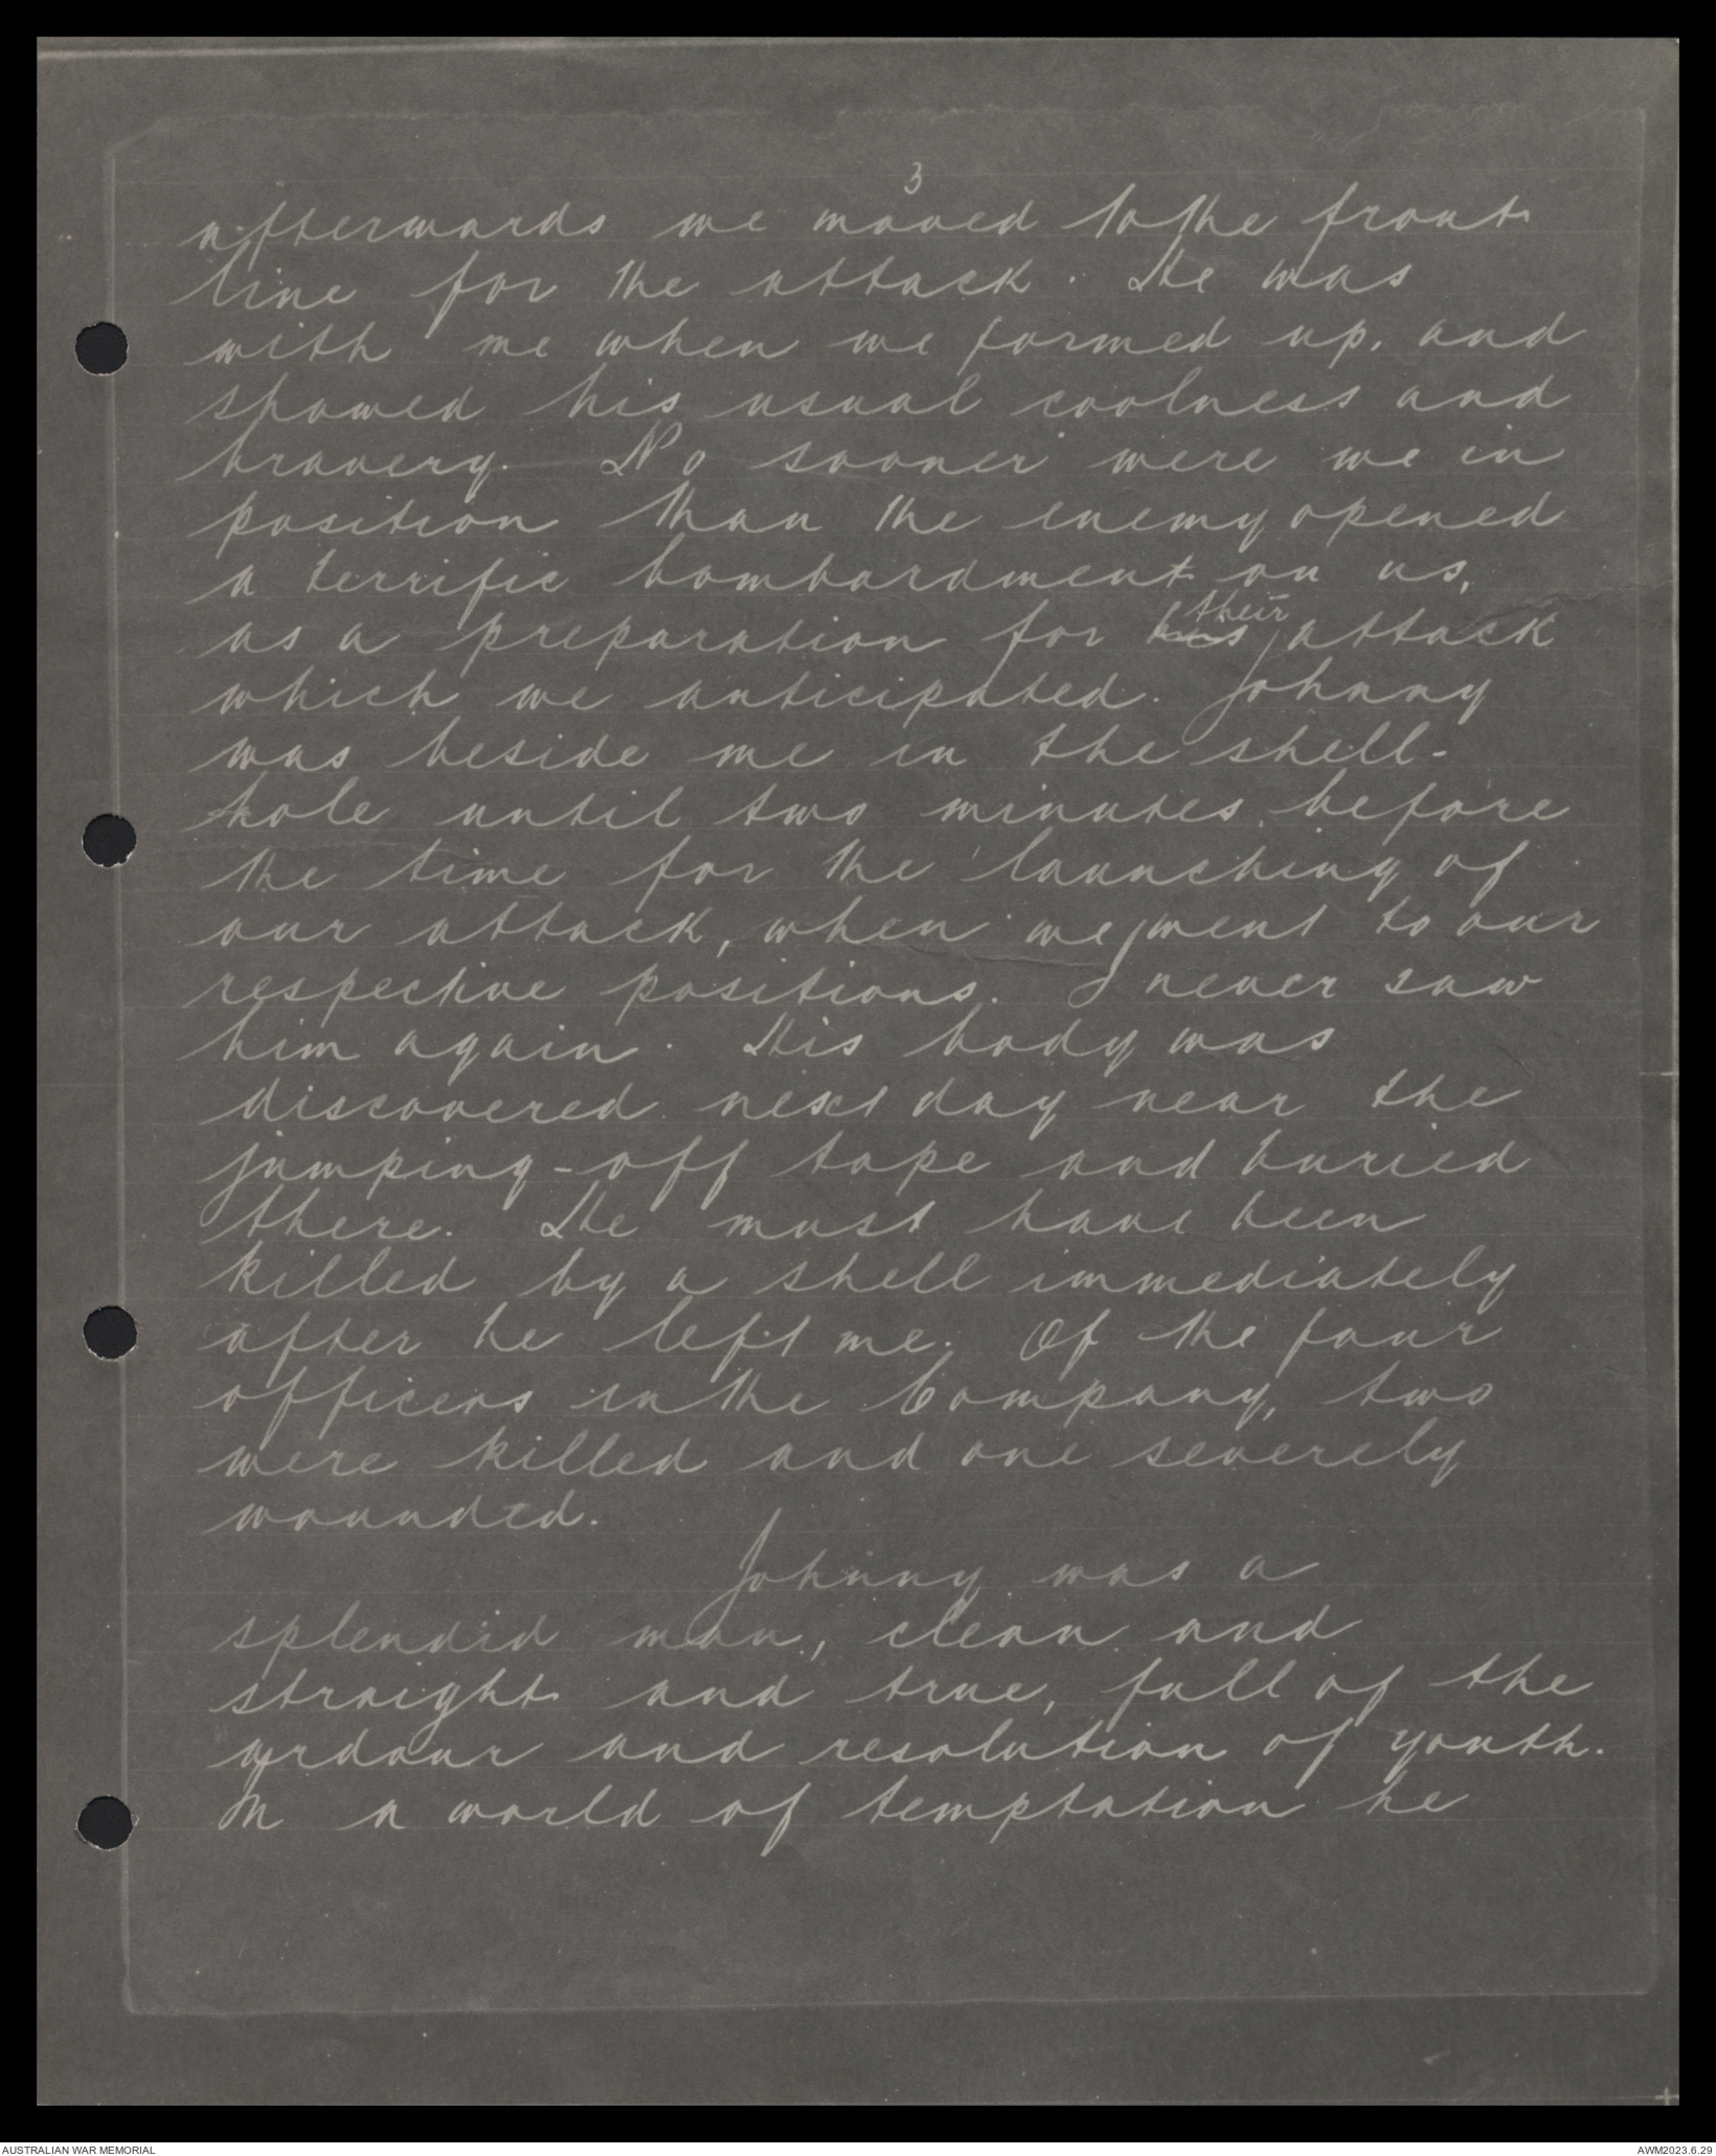 3
afterwards we moved to the front
line for the attack. He was
with me when we formed up, and
showed his usual coolness and
bravery. No sooner were we in
position than the enemy opened
a terrific bombardment on us,
as a preparation for their attack
which we anticipated. Johnny
was beside me in the shell-
hole until two minutes before
the time for the launching of
our attack, when we went to our
respective positions. I never saw
him again. His body was
discovered next day near the
jumping-off tape and buried
there. He must have been
killed by a shell immediately
after he left me. Of the four
officers in the Company, two
were killed and one severely
wounded.
Johnny was a
splendid man, clean and
straight and true, full of the
ardour and resolution of youth.
In a world of temptation he
AUSTRALIAN WAR MEMORIAL
AWM2023.6.29